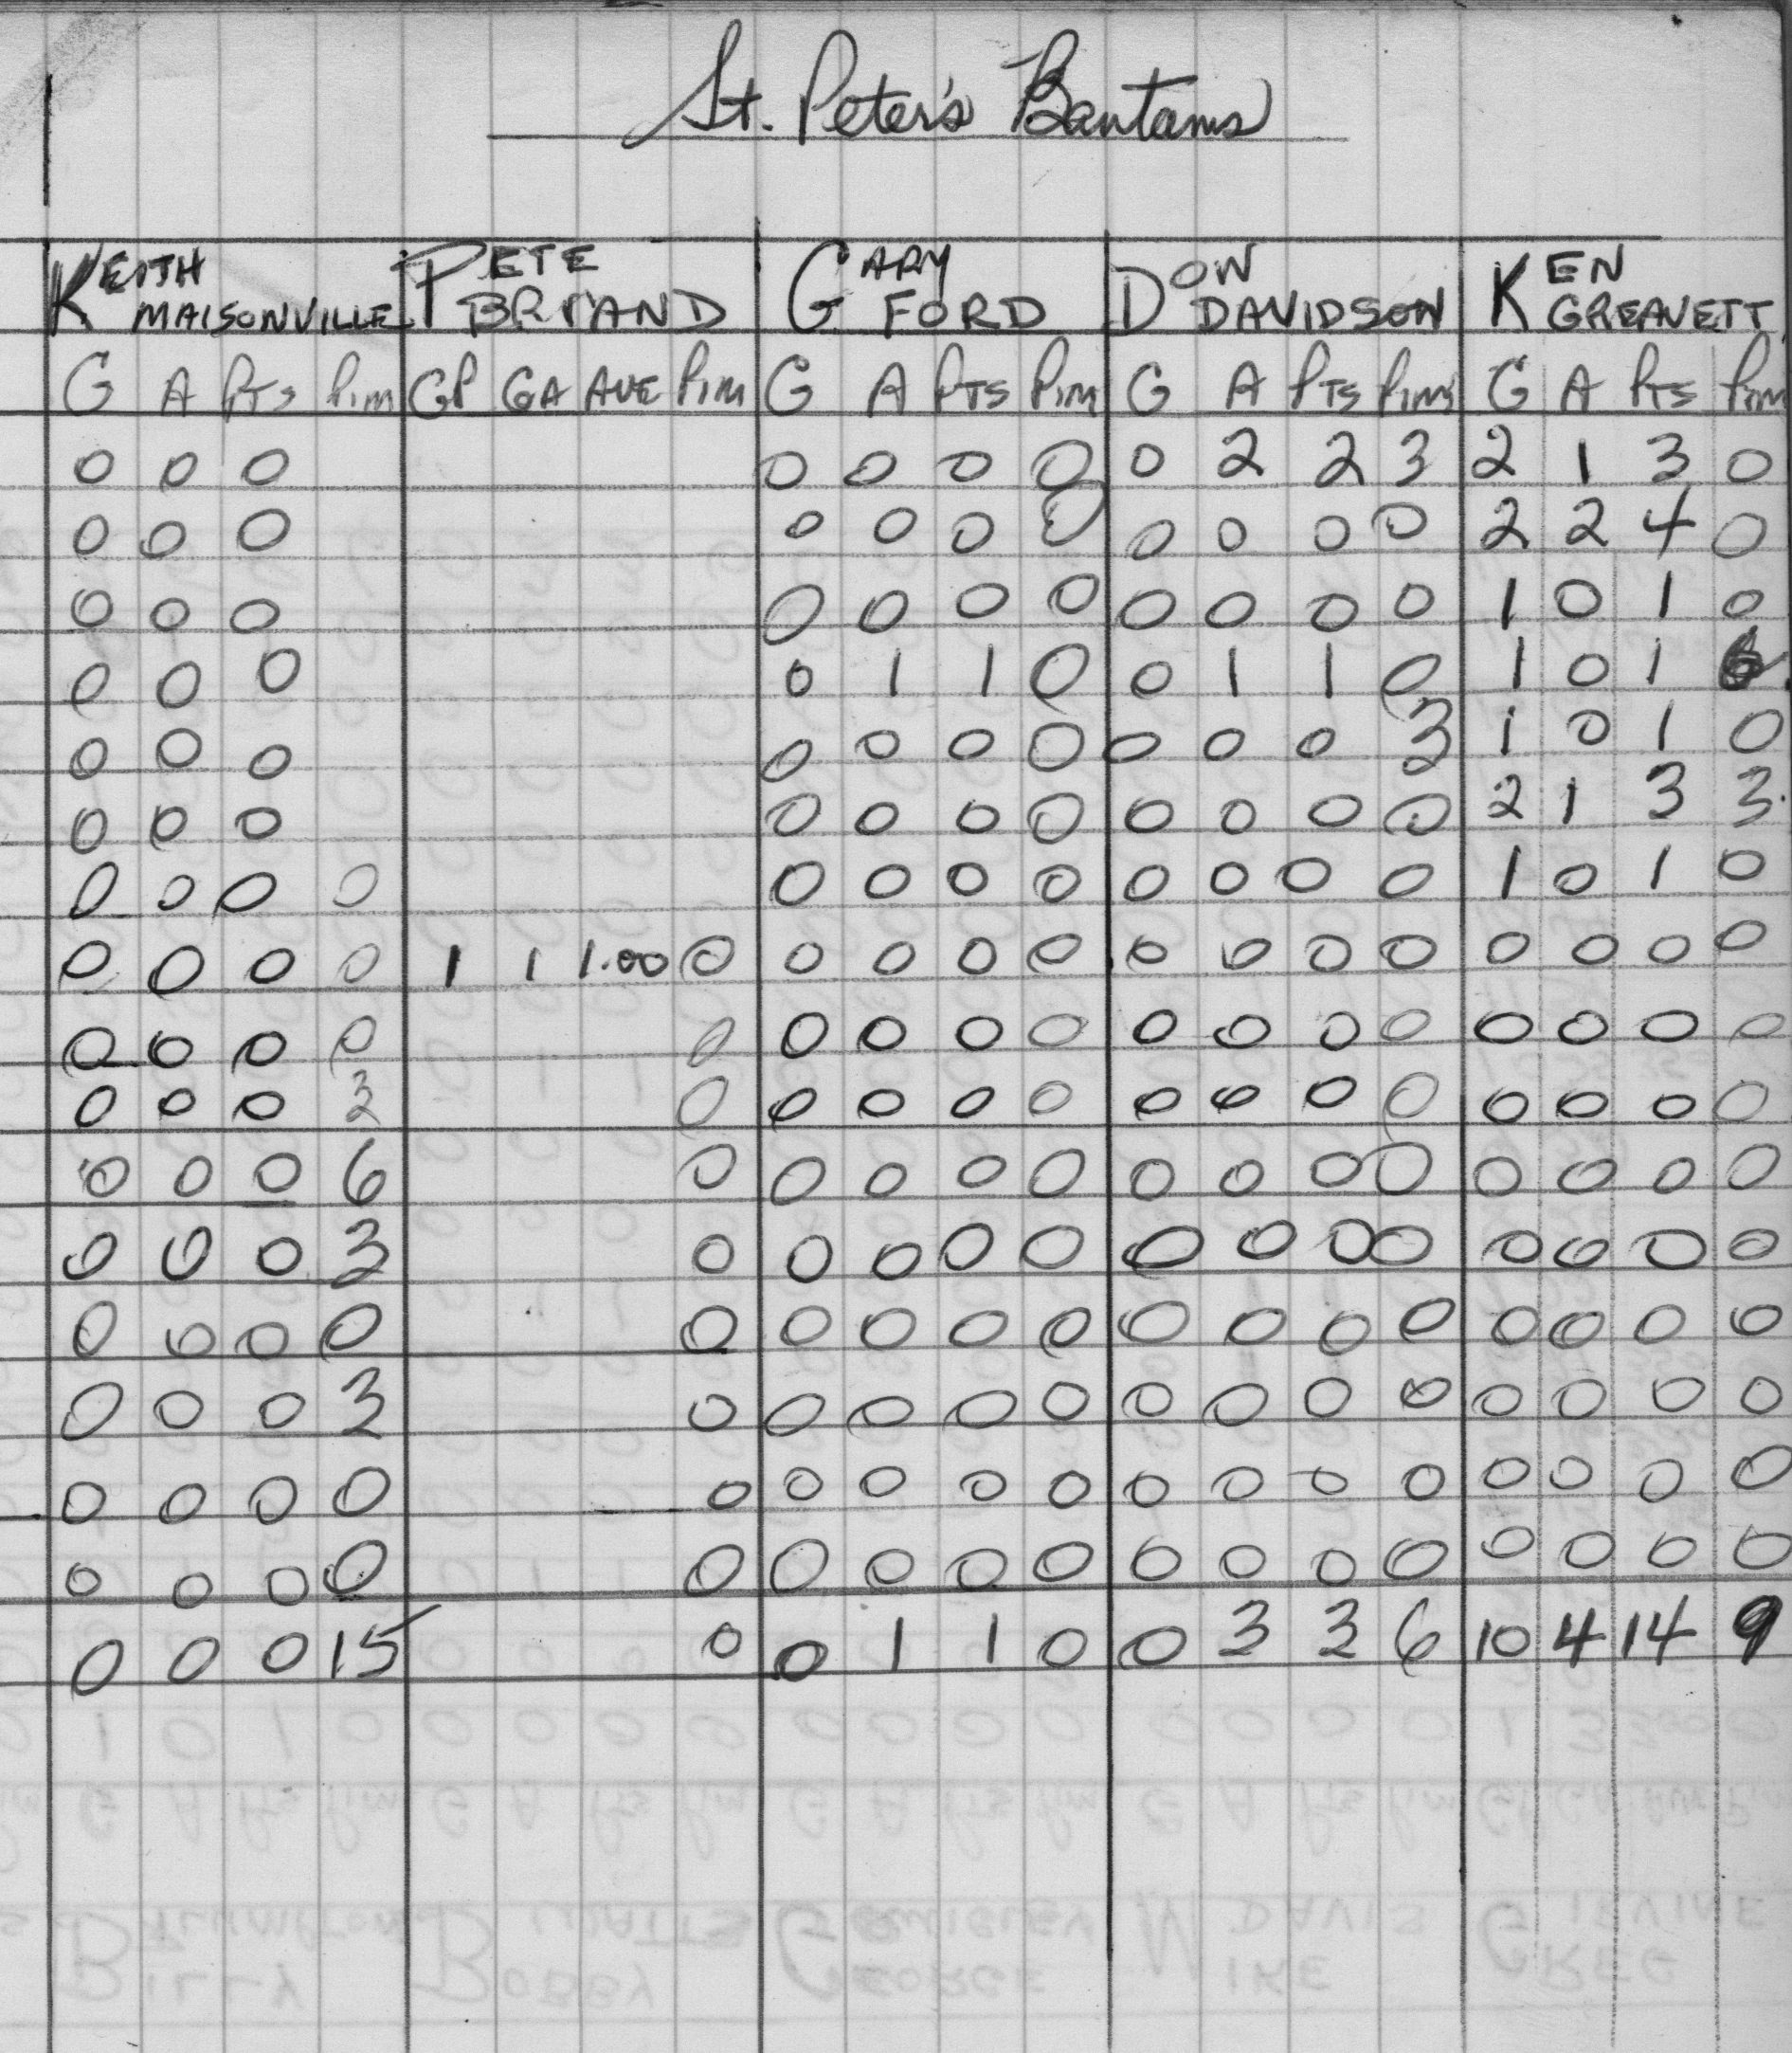 St. Peter's Bantams
KEITH MAISONVILLE PETE BRIAND GARY FORD DON DAVIDSON KEN GREAVETT
G A Pts Pim GP GA AVE Pim G A PTS Pim G A PTS Pim G A PTS Pim
0 0 0 0 0 0 0 0 2 2 3 2 1 3 0
0 0 0 0 0 0 0 0 0 0 0 2 2 4 0
0 0 0 0 0 0 0 0 0 0 0 1 0 1 0
0 0 0 0 1 1 0 0 1 1 0 1 0 1 6
0 0 0 0 0 0 0 0 0 0 3 1 0 1 0
0 0 0 0 0 0 0 0 0 0 0 2 1 3 3
0 0 0 0 0 0 0 0 0 0 0 0 1 0 1 0
0 0 0 0 1 1 1.00 0 0 0 0 0 0 0 0 0 0 0 0 0
0 0 0 0 0 0 0 0 0 0 0 0 0 0 0 0 0
0 0 0 3 0 0 0 0 0 0 0 0 0 0 0 0 0
0 0 0 6 0 0 0 0 0 0 0 0 0 0 0 0 0
0 0 0 3 0 0 0 0 0 0 0 0 0 0 0 0 0
0 0 0 0 0 0 0 0 0 0 0 0 0 0 0 0 0
0 0 0 3 0 0 0 0 0 0 0 0 0 0 0 0 0
0 0 0 0 0 0 0 0 0 0 0 0 0 0 0 0 0
0 0 0 0 0 0 0 0 0 0 0 0 0 0 0 0 0
0 0 0 15 0 0 1 1 0 0 3 3 6 10 4 14 9